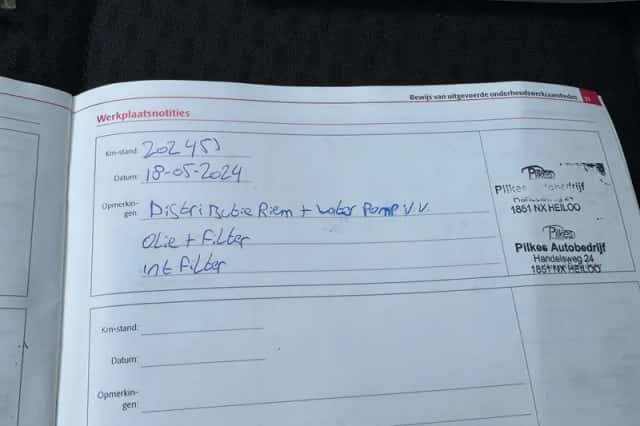 Bewijs van uitgevoerde onderhoudswerkzaamheden
Werkplaatsnotities
Km-stand:
Datum: 18-05-2024
Opmerkin-
gen: Distributie Riem + water Pomp V.V.
olie + Filter
int Filter
Pilkes
Pilkes
1851 NX HEILOO
Pilkes
Pilkes Autobedrijf
Handelsweg 24
1851 NX HEILOO
Km-stand:
Datum:
Opmerkin-
gen: